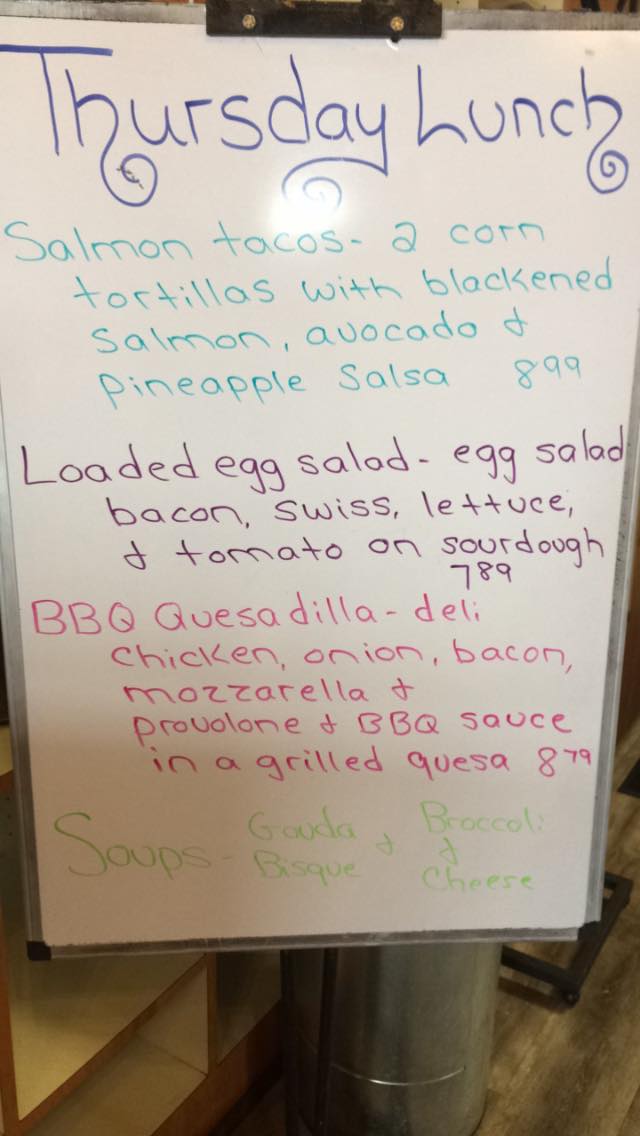 Thursday Lunch
Salmon tacos - 2 corn
tortillas with blackened
salmon, avocado &
pineapple salsa 899
Loaded egg salad - egg salad
bacon, swiss, lettuce,
& tomato on sourdough
789
BBQ Quesadilla - deli
chicken, onion, bacon,
mozzarella &
provolone & BBQ sauce
in a grilled quesa 879
Soups - Gouda Bisque & Broccoli & Cheese